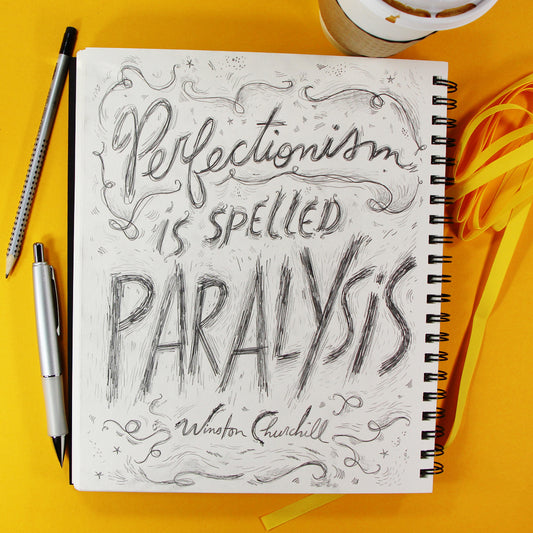 Perfectionism
is SPELLED
PARALYSiS
Winston Churchill